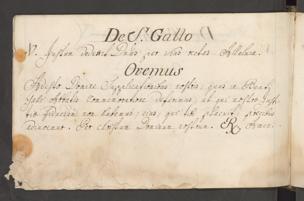 De S. Gallo
V. Justum deduxit Dnus per vias rectas. Alleluia.
Oremus
Adesto Domine supplicationibus nostris, quas in Beati
Galli Abbatis commemoratione deferimus, ut qui nostrae justi
tiae fiduciam non habemus, ejus, qui tibi placuit, precibus
adjuvemur. Per Christum Dominum nostrum. R. Amen.